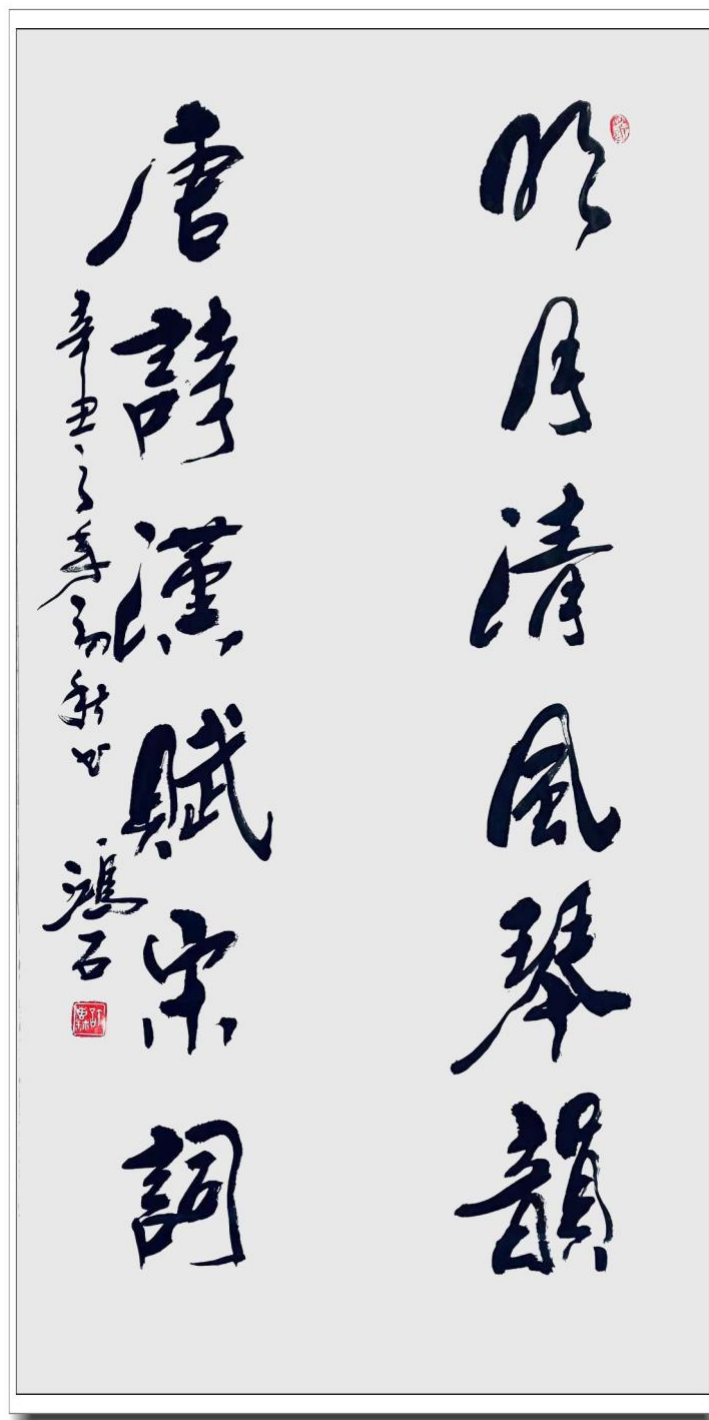 明月清風琴韻
唐詩漢賦宋詞
辛丑之年初秋書 鴻石